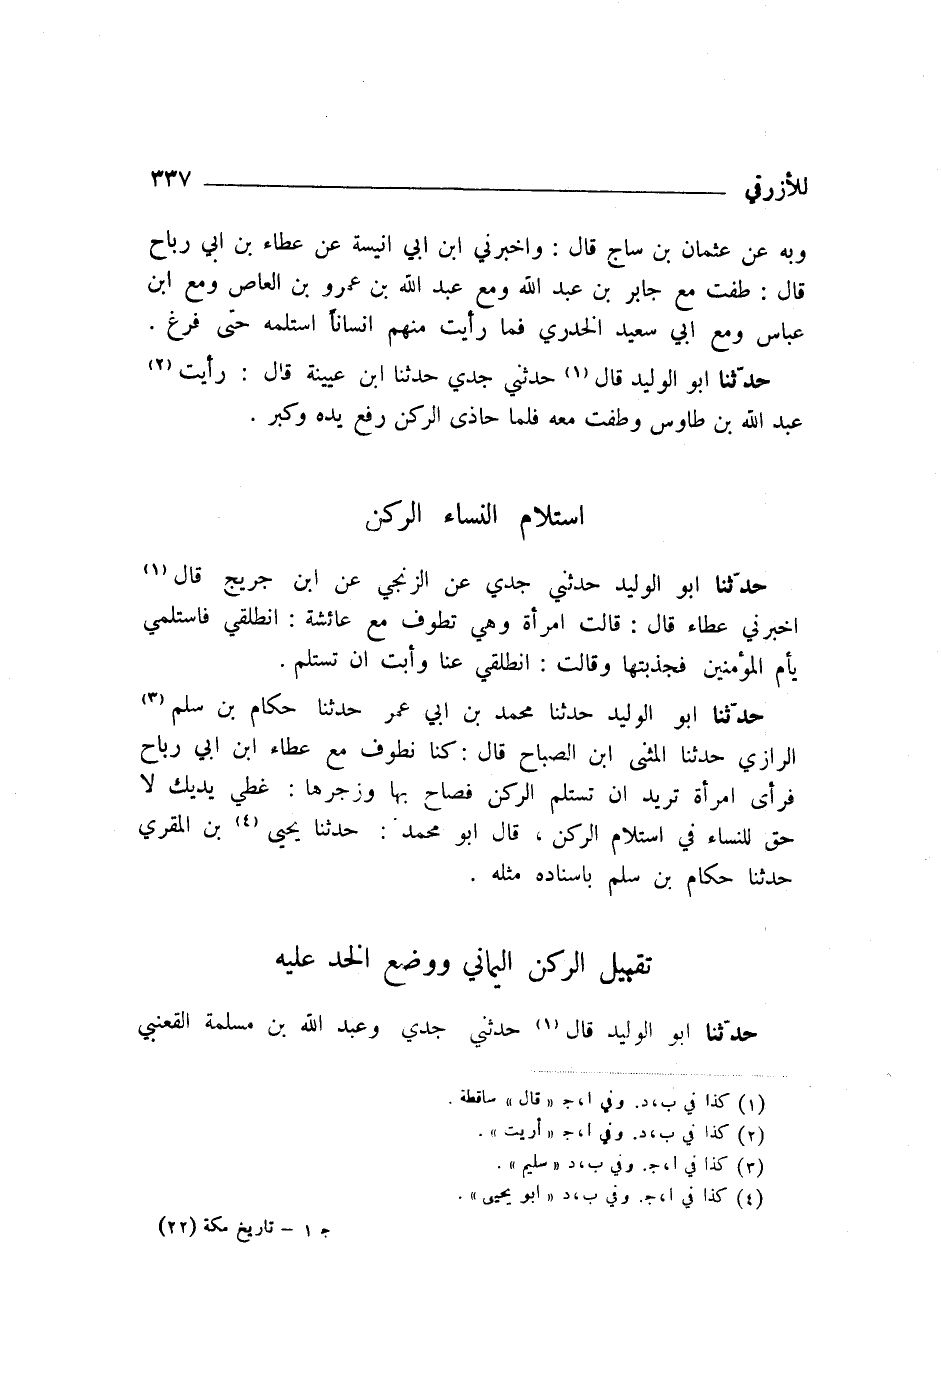 للأزرقي ٣٣٧
وبه عن عثمان بن ساج قال : واخبرني ابن ابي انيسة عن عطاء بن ابي رباح
قال : طفت مع جابر بن عبد الله ومع عبد الله بن عمرو بن العاص ومع ابن
عباس ومع ابي سعيد الخدري فما رأيت منهم انساناً استلمه حتى فرغ .
حدّثنا ابو الوليد قال (١) حدثني جدي حدثنا ابن عيينة قال : رأيت (٢)
عبد الله بن طاوس وطفت معه فلما حاذى الركن رفع يده وكبر .
استلام النساء الركن
حدّثنا ابو الوليد حدثني جدي عن الزنجي عن ابن جريج قال (١)
اخبرني عطاء قال : قالت امرأة وهي تطوف مع عائشة : انطلقي فاستلمي
يأم المؤمنين فجذبتها وقالت : انطلقي عنا وأبت ان تستلم .
حدّثنا ابو الوليد حدثنا محمد بن ابي عمر حدثنا حكام بن سلم (٣)
الرازي حدثنا المثنى ابن الصباح قال : كنا نطوف مع عطاء ابن ابي رباح
فرأى امرأة تريد ان تستلم الركن فصاح بها وزجرها : غطي يديك لا
حق للنساء في استلام الركن ، قال ابو محمد : حدثنا يحيى (٤) بن المقري
حدثنا حكام بن سلم باسناده مثله .
تقبيل الركن اليماني ووضع الخد عليه
حدّثنا ابو الوليد قال (١) حدثني جدي وعبد الله بن مسلمة القعنبي
(١) كذا في ب،د. وفي ا،ج « قال » ساقطة .
(٢) كذا في ب،د. وفي ا،ج « أريت » .
(٣) كذا في ا،ج. وفي ب،د « سليم » .
(٤) كذا في ا،ج. وفي ب،د « ابو يحيى » .
ج ١ – تاريخ مكة (٢٢)